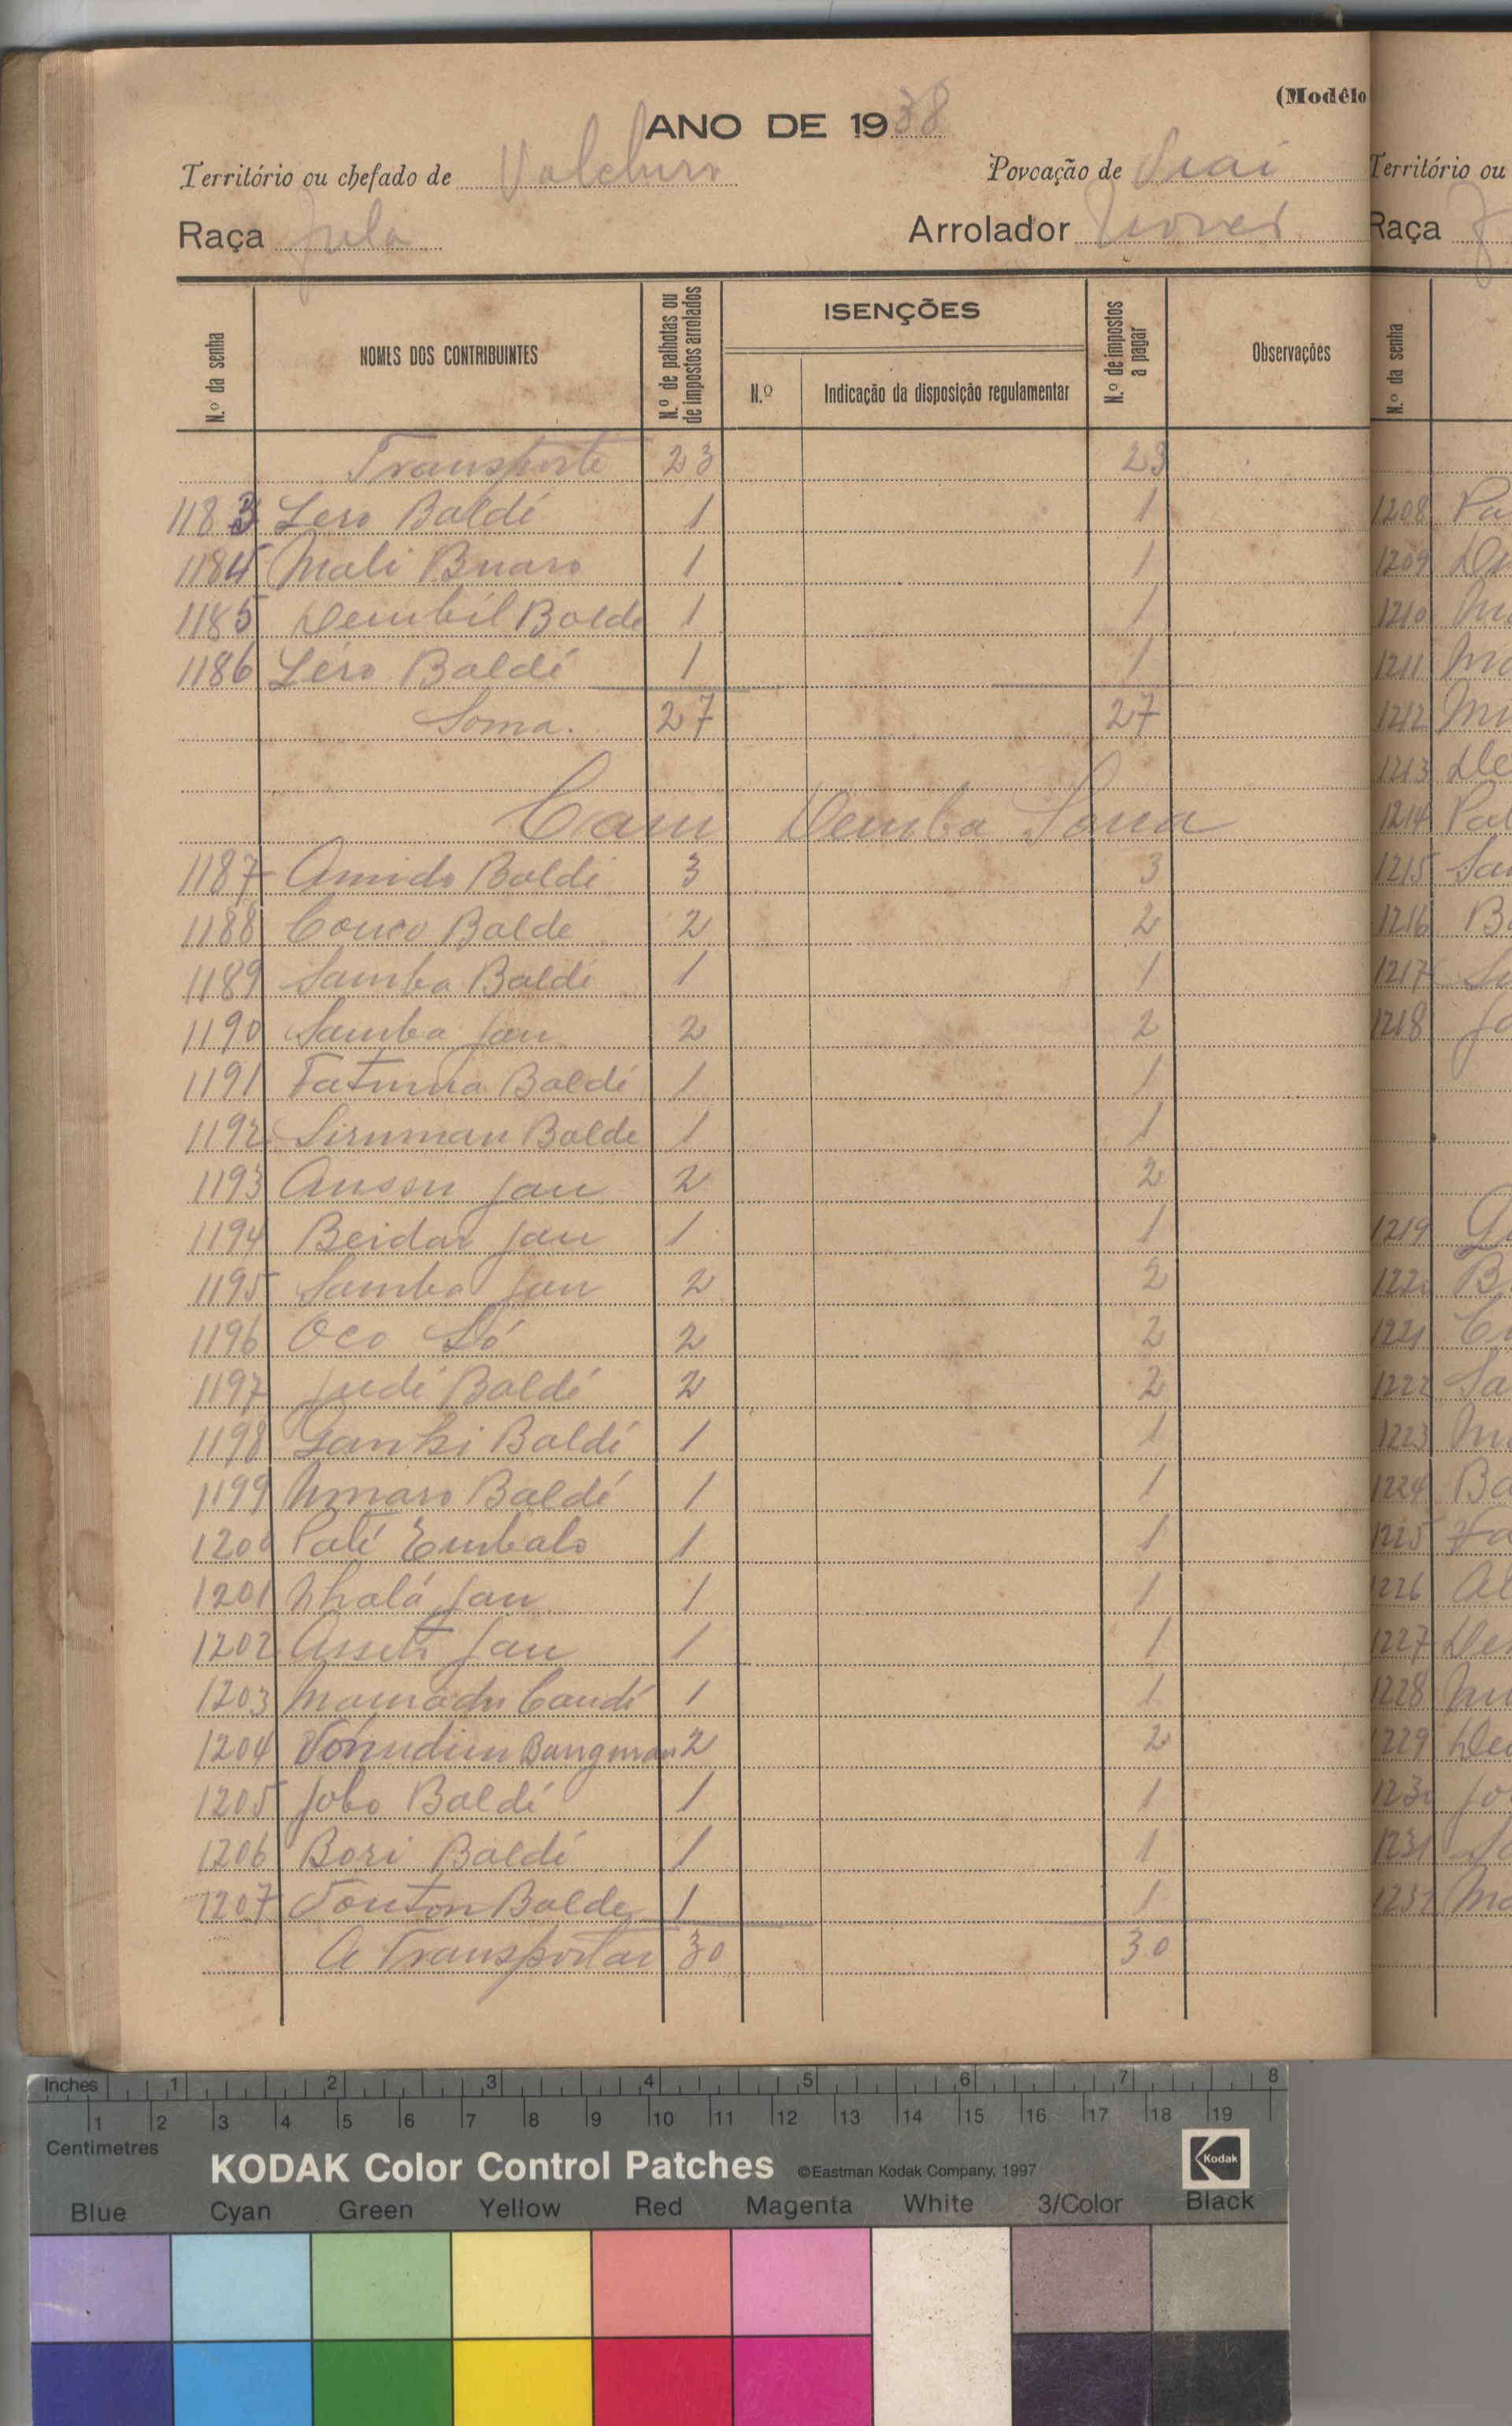 (Modêlo
ANO DE 1938
Território ou chefado de
Povoação de
Raça Fula
Arrolador
N.º da senha
NOMES DOS CONTRIBUINTES
N.º de palhotas ou de impostos arrolados
ISENÇÕES
N.º
Indicação da disposição regulamentar
N.º de impostos a pagar
Observações
Transporte 23 23
1183 Lero Baldé 1 1
1184 Mali Buaro 1 1
1185 Dembél Balde 1 1
1186 Léro Baldé 1 1
Soma. 27 27
Cam Demba Soua
1187 Amido Baldé 3 3
1188 Couco Balde 2 2
1189 Samba Baldé 1 1
1190 Samba Jau 2 2
1191 Fatuma Baldé 1 1
1192 Siruman Balde 1 1
1193 Ansou Jau 2 2
1194 Beidar Jau 1 1
1195 Samba Jau 2 2
1196 Oco Só 2 2
1197 Judé Baldé 2 2
1198 Ganki Baldé 1 1
1199 Umaro Baldé 1 1
1200 Paté Embalo 1 1
1201 Nhalá Jau 1 1
1202 Asset Jau 1 1
1203 Mamadu Candé 1 1
1204 2 2
1205 Jobo Baldé 1 1
1206 Bori Baldé 1 1
1207 Balde 1 1
A Transportar 30 30
Território ou
Raça
N.º da senha
1208 Pa
1209 De
1210
1211 Ma
1212 Mi
1213 De
1214 Pa
1215 Sa
1216 B
1217
1218 Ja
1219
1220 B
1221
1222 Sa
1223
1224 Ba
1225
1226 Al
1227 De
1228
1229 De
1230 Jo
1231
1232 Ma
Inches 1 2 3 4 5 6 7 8
1 2 3 4 5 6 7 8 9 10 11 12 13 14 15 16 17 18 19
Centimetres
KODAK Color Control Patches ©Eastman Kodak Company, 1997 Kodak
Blue Cyan Green Yellow Red Magenta White 3/Color Black